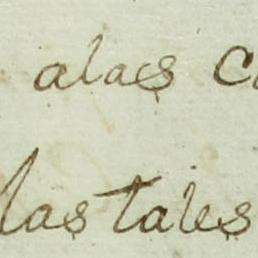 alas
las tales